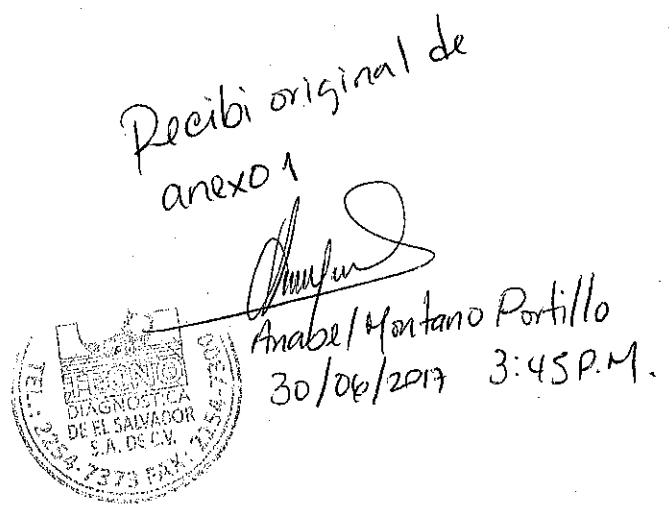 Recibi original de
anexo 1
Anabel Montano Portillo
30/06/2017 3:45 P.M.
TECNO
DIAGNOSTICA
DE EL SALVADOR
S.A. DE C.V.
TEL.: 2254-7373 FAX: